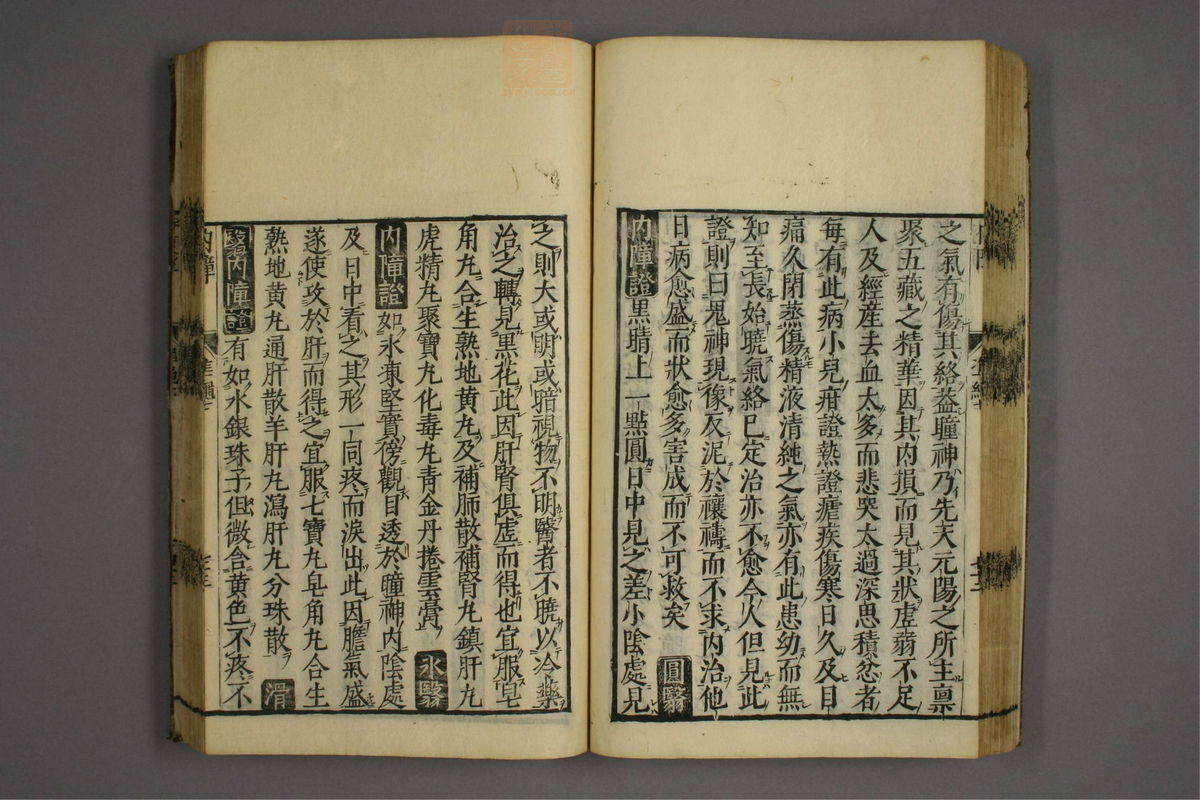 之氣有傷其絡蓋瞳神乃先天元陽之所主稟
聚五藏之精華因其內損而見其狀虛弱不足
人及經産去血太多而悲哭太過深思積忿者
每有此病小兒疳證熱證瘧疾傷寒日久及目
痛久閉蒸傷精液清純之氣亦有此患幼而無
知至長始曉氣絡已定治亦不愈今人但見此
證則曰鬼神現像反泥於禳禱而不求內治他
日病愈盛而狀愈多害成而不可救矣 圓翳
內障證黑睛上一點圓日中見之差小陰處見
之則大或明或暗視物不明醫者不曉以冷藥
治之轉見黑花此因肝腎俱虛而得也宜服皂
角丸合生熟地黃丸及補肺散補腎丸鎮肝丸
虎精丸聚寶丸化毒丸青金丹捲雲膏 氷翳
內障證如氷凍堅實傍觀目透於瞳神內陰處
及日中看之其形一同疼而淚出此因膽氣盛
遂使攻於肝而得之宜服七寶丸皂角丸合生
熟地黃丸通肝散羊肝丸瀉肝丸分珠散 滑
翳內障證有如水銀珠子但微含黃色不疼不